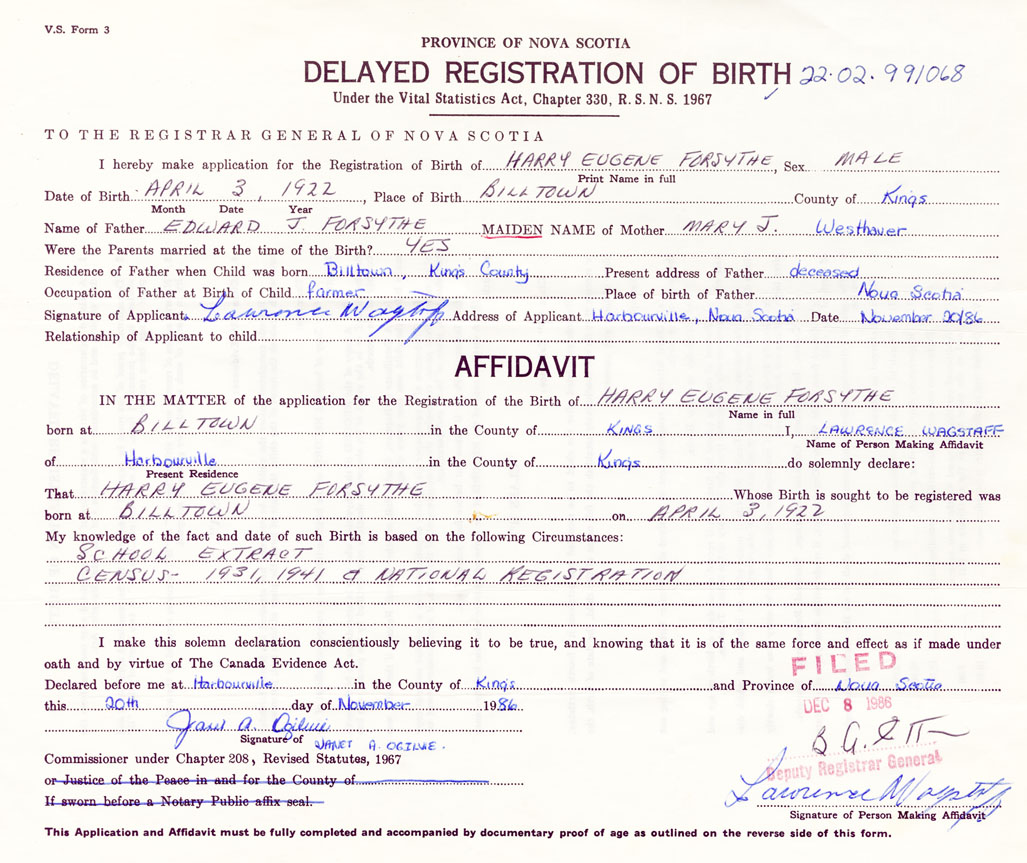 V.S. Form 3
PROVINCE OF NOVA SCOTIA
DELAYED REGISTRATION OF BIRTH 22·02·99/068
Under the Vital Statistics Act, Chapter 330, R.S.N.S. 1967
TO THE REGISTRAR GENERAL OF NOVA SCOTIA
I hereby make application for the Registration of Birth of HARRY EUGENE FORSYTHE, Sex MALE
Print Name in full
Date of Birth APRIL 3, 1922, Place of Birth BILLTOWN County of Kings
Month Date Year
Name of Father EDWARD J. FORSYTHE MAIDEN NAME of Mother MARY J. Westhaver
Were the Parents married at the time of the Birth? YES
Residence of Father when Child was born Billtown, Kings County Present address of Father deceased
Occupation of Father at Birth of Child farmer Place of birth of Father Nova Scotia
Signature of Applicant Lawrence Wagstaff Address of Applicant Harbourville, Nova Scotia Date November 20/86
Relationship of Applicant to child
AFFIDAVIT
IN THE MATTER of the application for the Registration of the Birth of HARRY EUGENE FORSYTHE
Name in full
born at BILLTOWN in the County of KINGS I, LAWRENCE WAGSTAFF
Name of Person Making Affidavit
of Harbourville in the County of Kings do solemnly declare:
Present Residence
That HARRY EUGENE FORSYTHE Whose Birth is sought to be registered was
born at BILLTOWN on APRIL 3, 1922
My knowledge of the fact and date of such Birth is based on the following Circumstances:
SCHOOL EXTRACT
CENSUS- 1931, 1941 & NATIONAL REGISTRATION
I make this solemn declaration conscientiously believing it to be true, and knowing that it is of the same force and effect as if made under
oath and by virtue of The Canada Evidence Act.
FILED
Declared before me at Harbourville in the County of Kings and Province of Nova Scotia
this 20th day of November 1986
DEC 8 1986
Janet A. Ogilvie
Signature of JANET A. OGILVIE.
Commissioner under Chapter 208, Revised Statutes, 1967
Deputy Registrar General
or Justice of the Peace in and for the County of
If sworn before a Notary Public affix seal.
Lawrence Wagstaff
Signature of Person Making Affidavit
This Application and Affidavit must be fully completed and accompanied by documentary proof of age as outlined on the reverse side of this form.